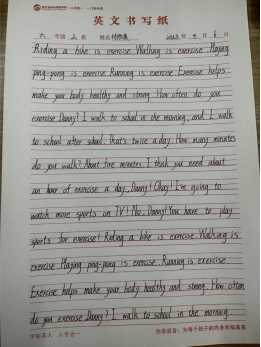 英文书写纸
六 年级 2 班 姓名 2023 年 9 月 6 日
Riding a bike is exercise. Walking is exercise. Playing
ping-pong is exercise. Running is exercise. Exercise helps
make your body healthy and strong. How often do you
exercise Danny? I walk to school in the morning, and I walk
to school after school. That's twice a day. How many minutes
do you walk? About five minutes. I think you need about
an hour of exercise a day, Danny! Okay! I'm going to
watch more sports on TV! No, Danny! You have to play
sports for exercise! Riding a bike is exercise. Walking is
exercise. Playing ping-pong is exercise. Running is exercise.
Exercise helps make your body healthy and strong. How often
do you exercise Danny? I walk to school in the morning
字如其人 人字合一